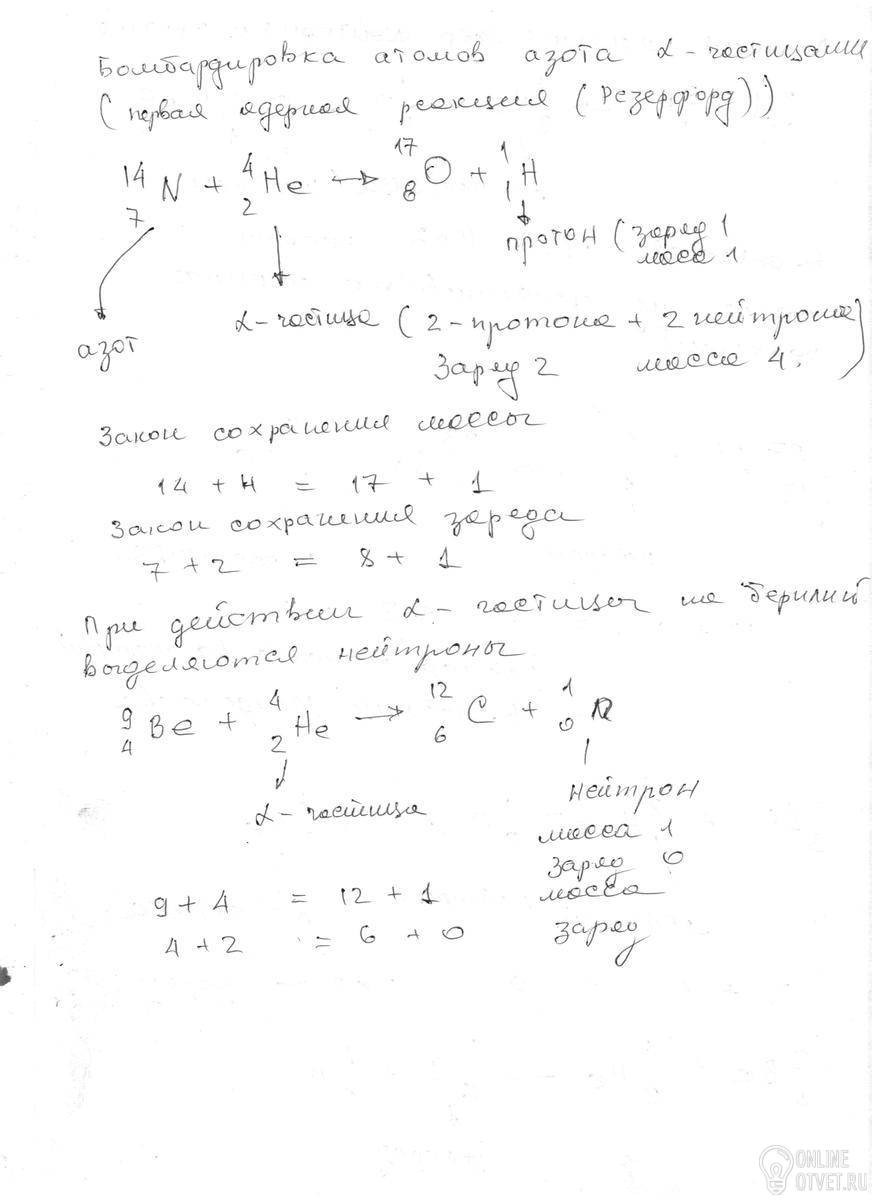 Бомбардировка атомов азота α-частицами
(первая ядерная реакция (Резерфорд))
¹⁴₇N + ⁴₂He → ¹⁷₈O + ¹₁H
протон (заряд 1
масса 1
азот
α-частица (2-протона + 2 нейтрона)
Заряд 2 масса 4.
Закон сохранения массы
14 + 4 = 17 + 1
Закон сохранения заряда
7 + 2 = 8 + 1
При действии α-частицы на берилий
выделяются нейтроны
⁹₄Be + ⁴₂He → ¹²₆C + ¹₀n
α-частица
нейтрон
масса 1
заряд 0
9 + 4 = 12 + 1 масса
4 + 2 = 6 + 0 заряд
ONLINE
OTVET.RU